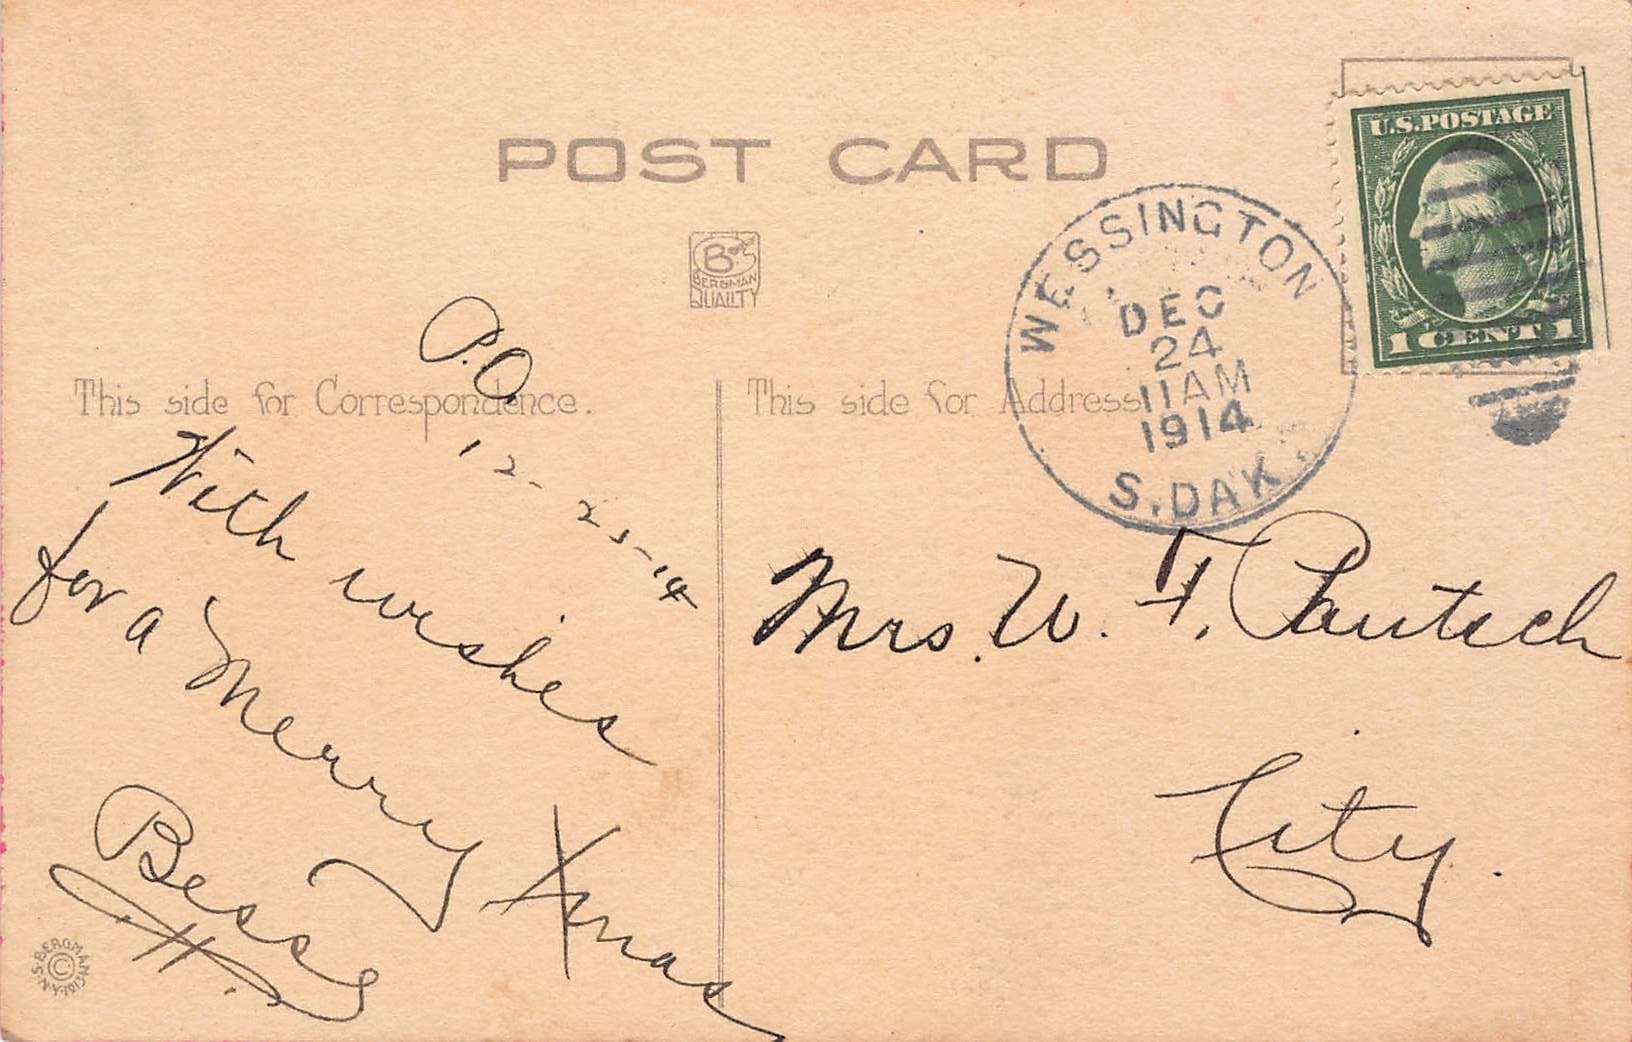 POST CARD
U.S.POSTAGE
1 CENT 1
WESSINGTON
DEC
24
11AM
1914
S.DAK.
B
BERGMAN
QUALITY
This side for Correspondence.
This side for Address
P.O.
12-25-14
With wishes
for a Merry Xmas
Bess
H.
Mrs. W. F. Pautsch
City.
© S. BERGMAN N.Y. 1913